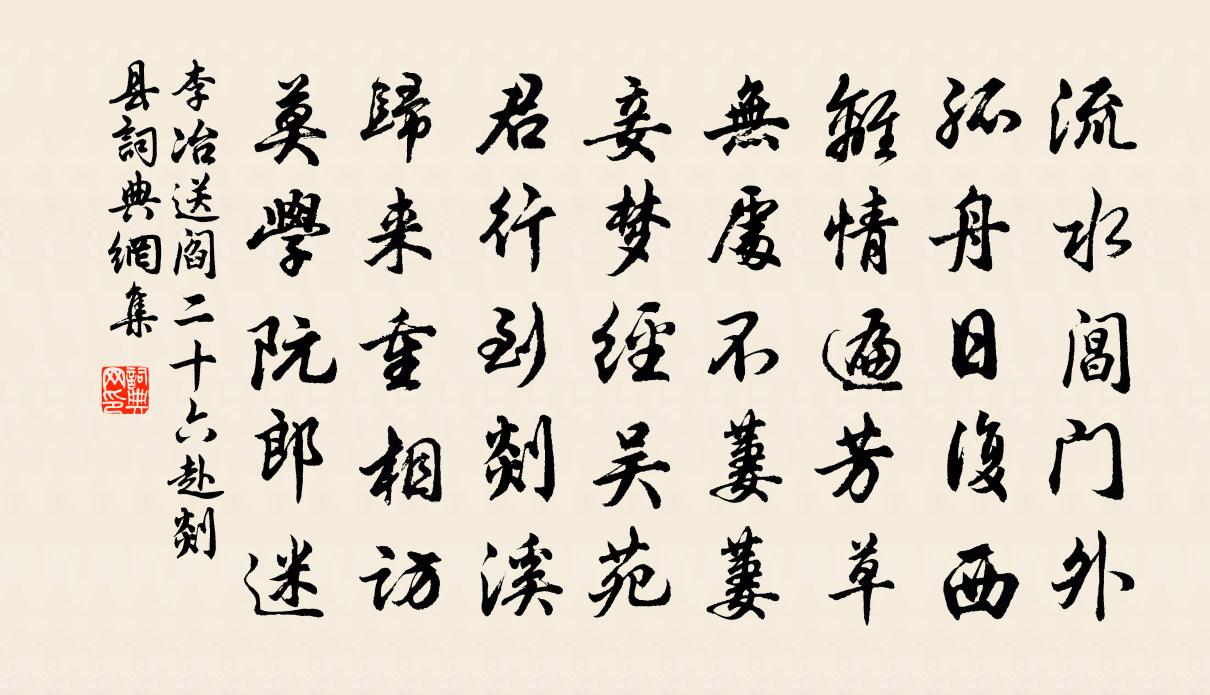 流水閶门外
孤舟日復西
離情遍芳草
無處不萋萋
妾梦經吴苑
君行到剡溪
歸来重相訪
莫學阮郎迷
李冶送閻二十六赴剡
县詞典網集
詞典网印